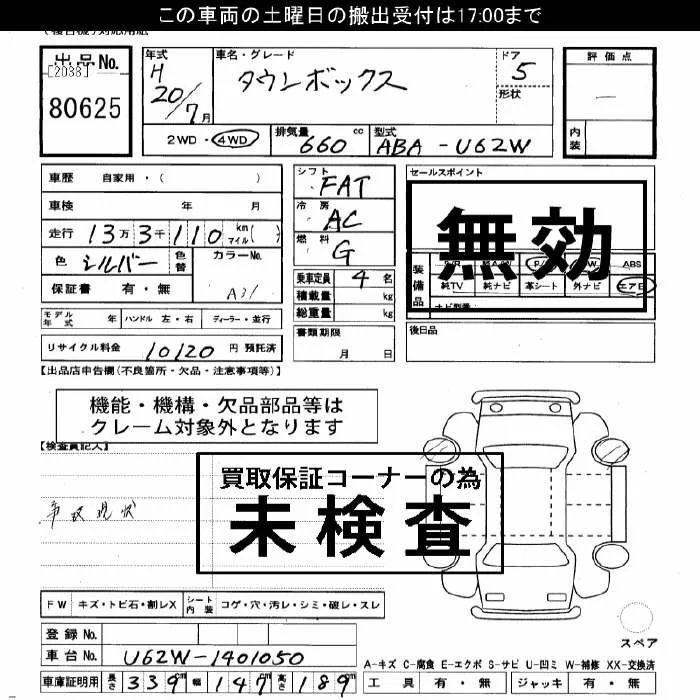 この車両の土曜日の搬出受付は17:00まで
出品No.
[2038]
80625
年式
H
20/7月
車名・グレード
タウンボックス
ドア
5
形状
評価点
内装
2WD・4WD
排気量
660 cc
型式
ABA-U62W
車歴 自家用・( )
車検 年 月
走行 13万3千110 km マイル( )
色 シルバー 色替
カラーNo.
A31
保証書 有・無
シフト
FAT
冷房
AC
燃料
G
乗車定員 4名
積載量 kg
総重量 kg
書類期限
月 日
セールスポイント
無効
装備品
ABS
純TV 純ナビ 革シート 外ナビ エアB
後日品
モデル年式 年 ハンドル 左・右 ディーラー・並行
リサイクル料金 10120 円 預託済
【出品店申告欄(不良箇所・欠品・注意事項等)】
機能・機構・欠品部品等は
クレーム対象外となります
【検査員記入】
買取保証コーナーの為
未検査
事故現状
FW キズ・トビ石・割レX シート内装 コゲ・穴・汚レ・シミ・破レ・スレ
スペア
登録No.
車台No. U62W-1401050
A-キズ C-腐食 E-エクボ S-サビ U-凹ミ W-補修 XX-交換済
車庫証明用 長さ 339 幅 147 高さ 189
工具 有・無 ジャッキ 有・無